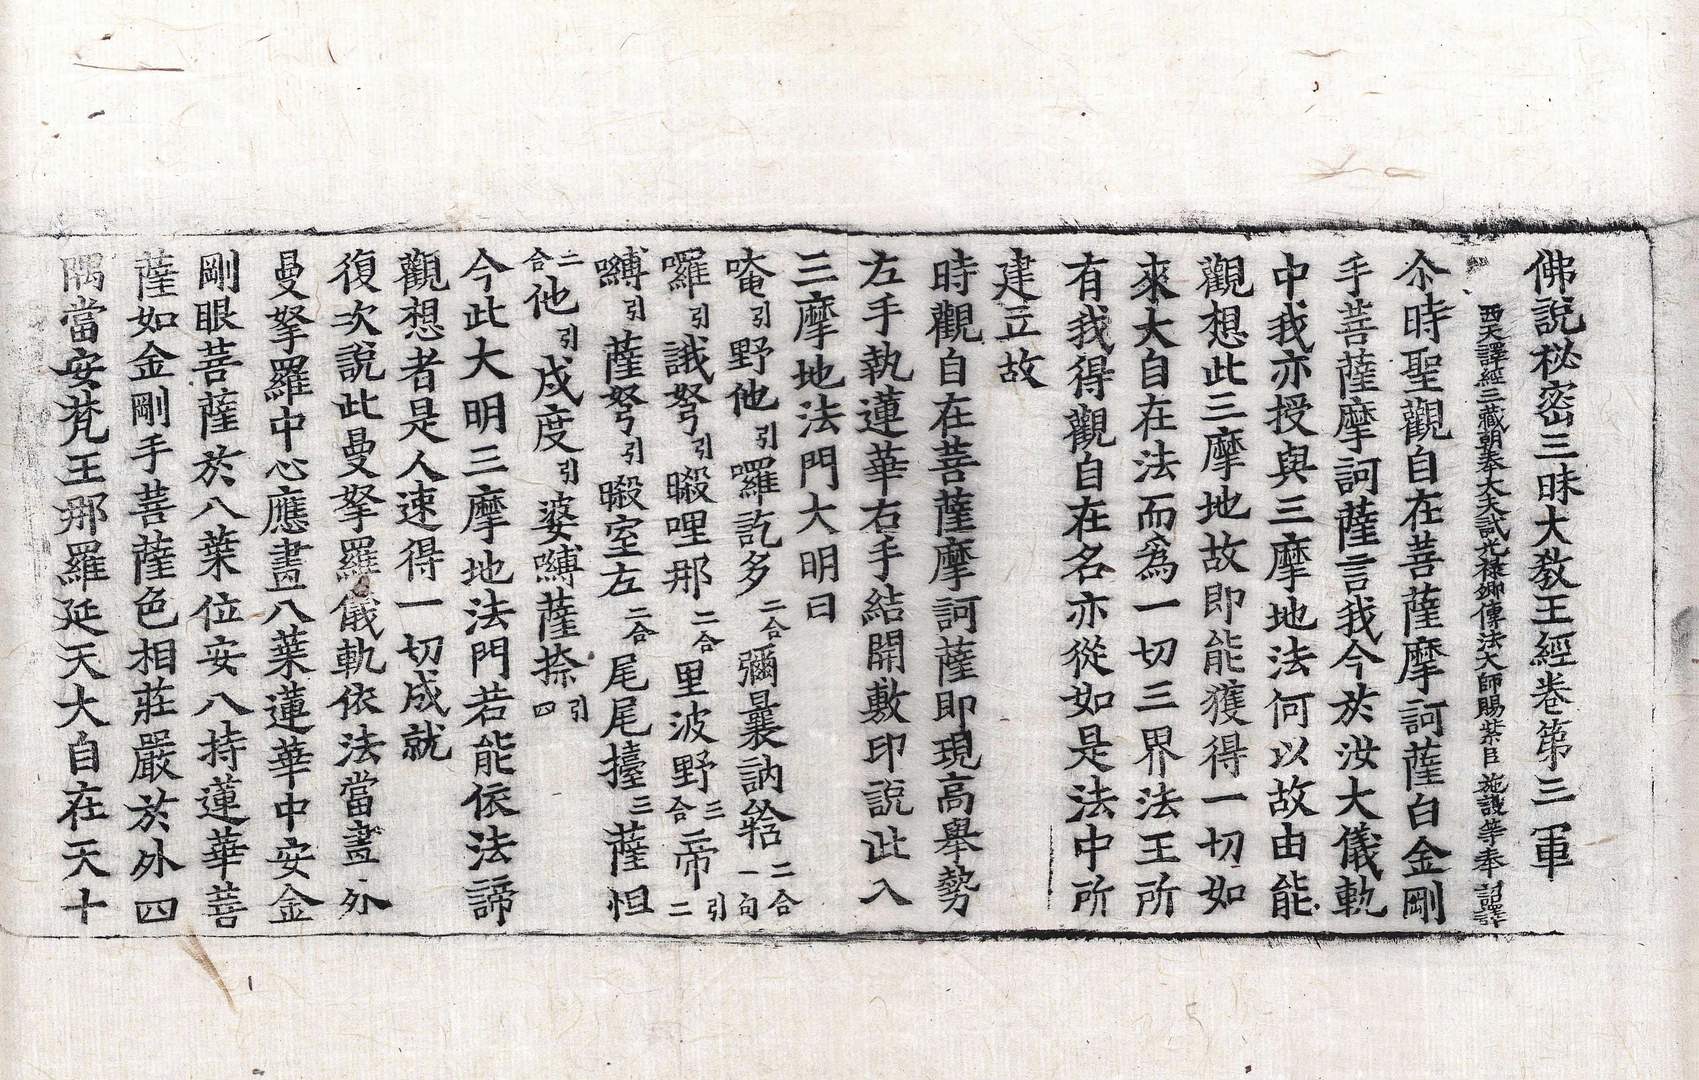 佛說秘密三昧大教王經卷第三 軍
西天譯經三藏朝奉大夫試光祿卿傳法大師賜紫臣 施護等奉 詔譯
尒時聖觀自在菩薩摩訶薩白金剛
手菩薩摩訶薩言我今於汝大儀軌
中我亦授與三摩地法何以故由能
觀想此三摩地故即能獲得一切如
來大自在法而爲一切三界法王所
有我得觀自在名亦從如是法中所
建立故
時觀自在菩薩摩訶薩即現高舉勢
左手執蓮華右手結開敷印說此入
三摩地法門大明曰
唵引野他引囉訖多二合彌曩訥 二合一句
囉引誐弩引㗨哩那二合里波野二合帝引二
嚩引薩弩引㗨室左二合尾尾擡三薩怛
二合他引戍度引婆嚩薩捺引四
今此大明三摩地法門若能依法諦
觀想者是人速得一切成就
復次說此曼拏羅儀軌依法當畫外
曼拏羅中心應畫八葉蓮華中安金
剛眼菩薩於八葉位安八持蓮華菩
薩如金剛手菩薩色相莊嚴於外四
隅當安梵王那羅延天大自在天十